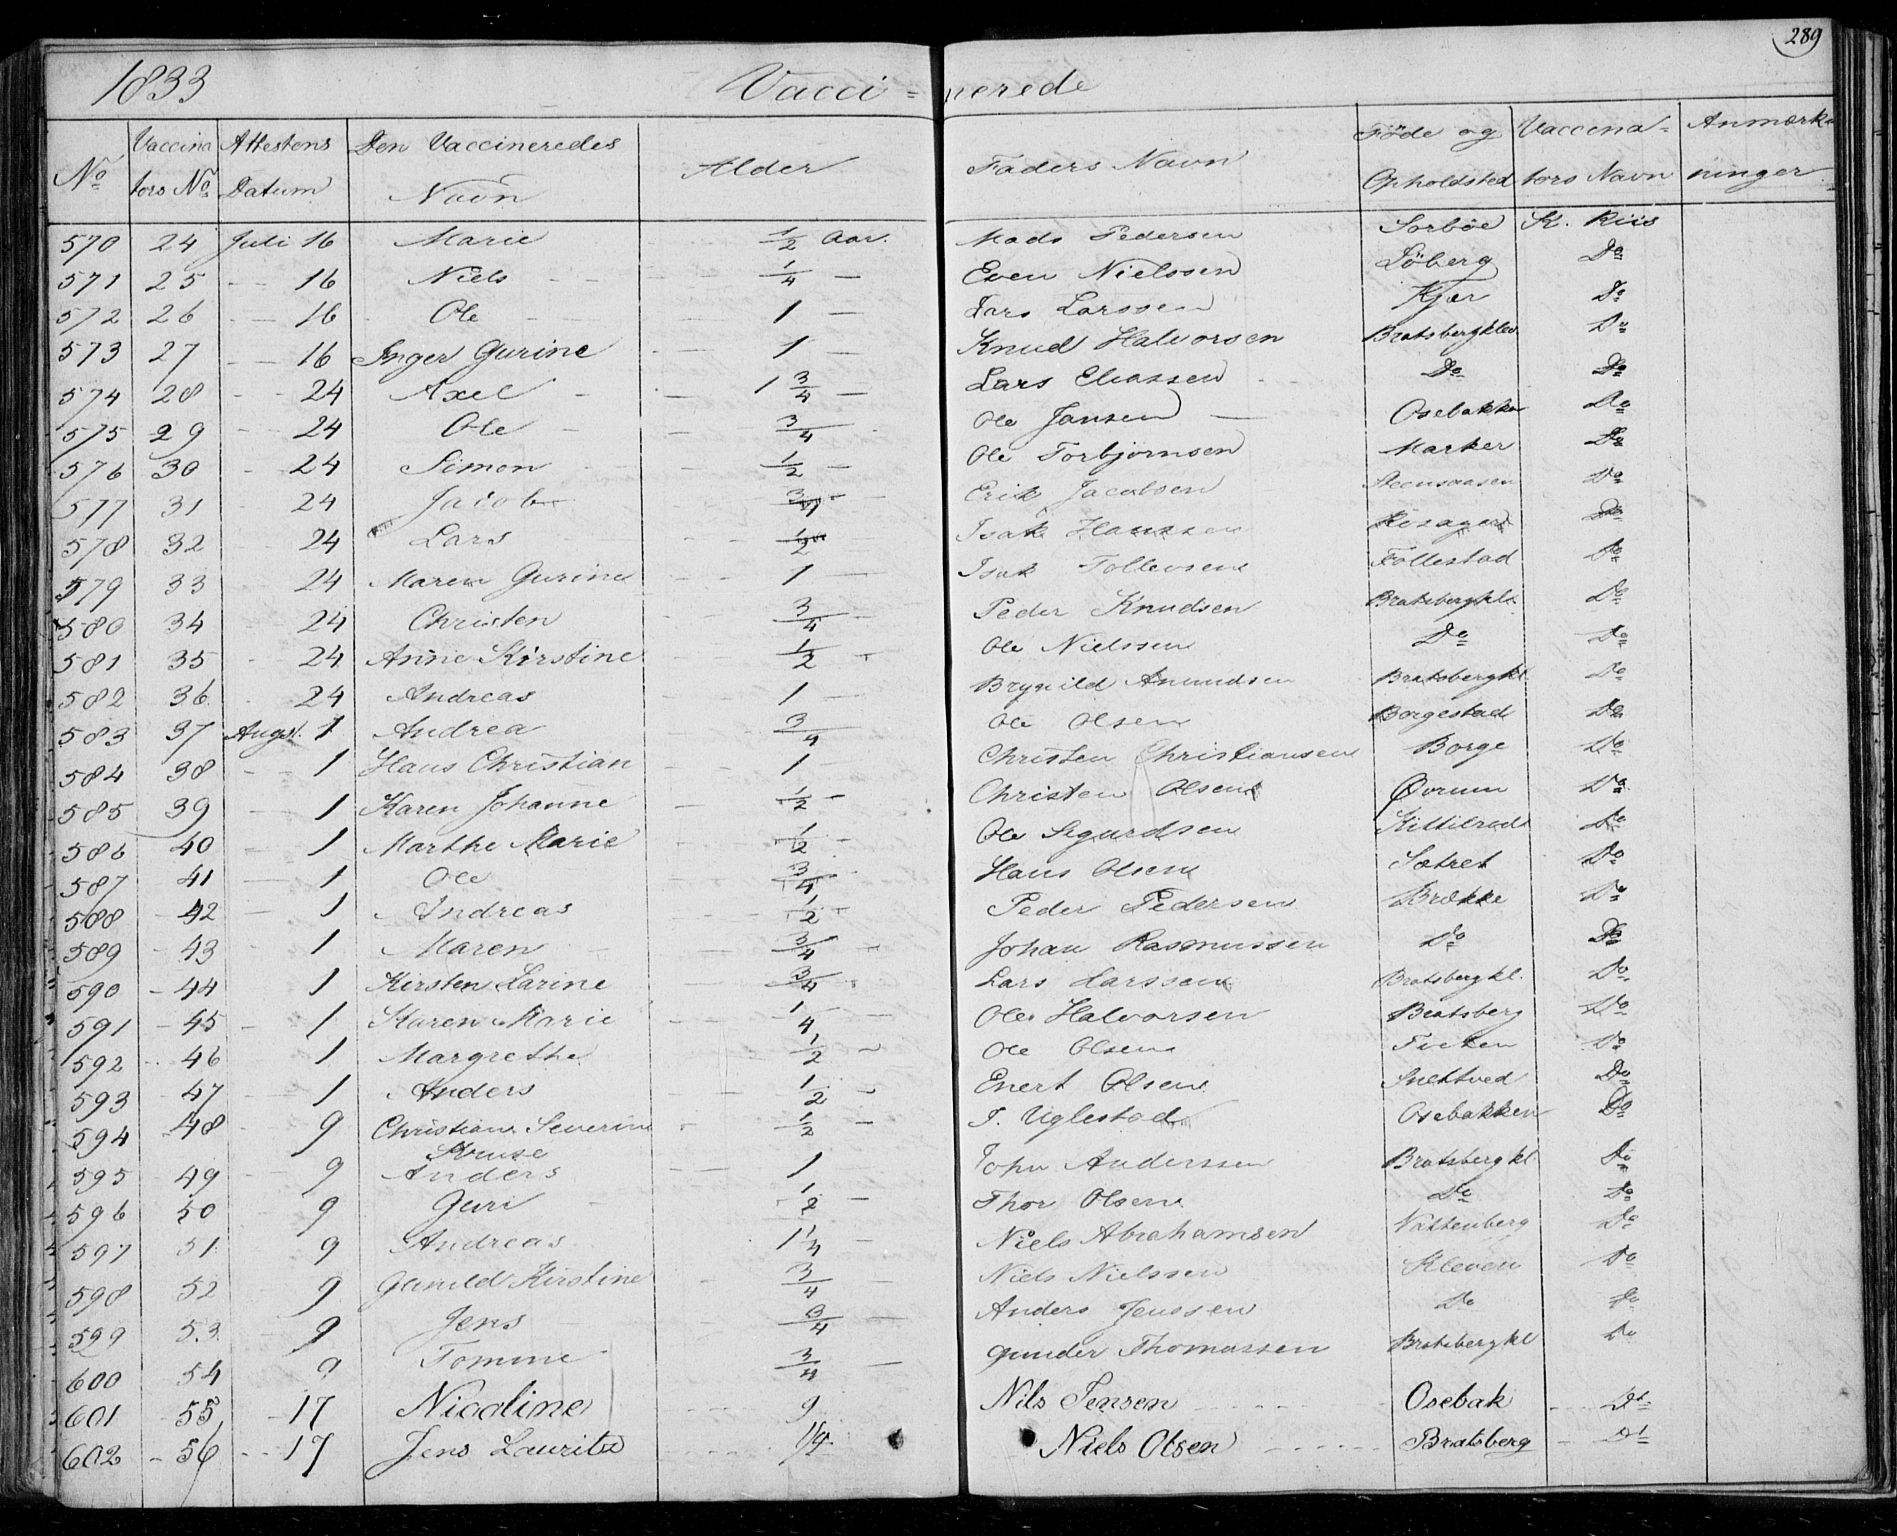 289
1833 Vacci= nerede
No Vaccina tors No Attestens Datum Den Vaccineredes Navn Alder Faders Navn Føde og Opholdsted Vaccina= tors Navn Anmærk ninger
570 24 Juli 16 Marie 1/2 Aar. Mads Pedersen Sorbøe K. Riis
571 25 — 16 Niels 1/4 — Even Nielssen Löberg Do
572 26 — 16 Ole 1 — Lars Larssen Kjær Do
573 27 — 16 Inger Gurine 1 — Knud Halvorsen Bratsbergklev Do
574 28 — 24 Axel 1 3/4 — Lars Eliassen Do Do
575 29 — 24 Ole 3/4 Ole Jansen Osebakken Do
576 30 — 24 Simon 1/2 — Ole Torbjørnsen Marker Do
577 31 24 Jacob 3/4 — Erik Jacobsen Do
578 32 24 Lars 1/2 Isak Hanssen Do
579 33 24 Maren Gurine 1 — Isak Tollevsen Follestad Do
580 34 24 Christen 3/4 — Peder Knudsen Bratsbergkl. Do
581 35 24 Anne Kirstine 1/2 Ole Nielssen Do Do
582 36 24 Andreas 1 — Brynild Amundsen Bratsbergkl Do
583 37 Augst. 1 Andrea 3/4 Ole Olsen Borgestad Do
584 38 — 1 Hans Christian 1 Christen Christiansen Borge Do
585 39 — 1 Karen Johanne 1/2 — Christen Olsen Øvrum Do
586 40 — 1 Marthe Marie 1/2 — Ole Sigurdsen Kittilrød Do
587 41 — 1 Ole 3/4 Hans Olsen Sætret Do
588 42 — 1 Andreas 1/2 Peder Pedersen Brække Do
589 43 1 Maren 3/4 Johan Rasmussen Do Do
590 44 1 Kirsten Larine 3/4 Lars Larssen Bratsbergkl. Do
591 45 — 1 Karen Marie 1/4 Ole Halvorsen Bratsberg Do
592 46 1 Margrethe 1/2 — Ole Olsen Do
593 47 1 Anders 1/2 — Enert Olsen Do
594 48 9 Christiane Severine Kruse 1/2 — T. Uglestad Osebakken Do
595 49 9 Anders 1 Anderssen Bratsbergkl Do
596 50 9 Guri 1/2 — Thor Olsen Do Do
597 51 9 Andreas 1 1/4 — Niels Abrahamsen Nattenberg Do
598 52 9 Gunild Kirstine 3/4 — Niels Nielssen Kleven Do
599 53 9 Jens 3/4 — Anders Jenssen Do Do
600 54 9 Tomine 3/4 — Gunder Thomassen Bratsbergkl Do
601 55 — 17 Nicoline 9 Nils Jensen Osebak Do
602 56 — 17 Jens Lauritz 1/4 Niels Olsen Bratsberg — Do